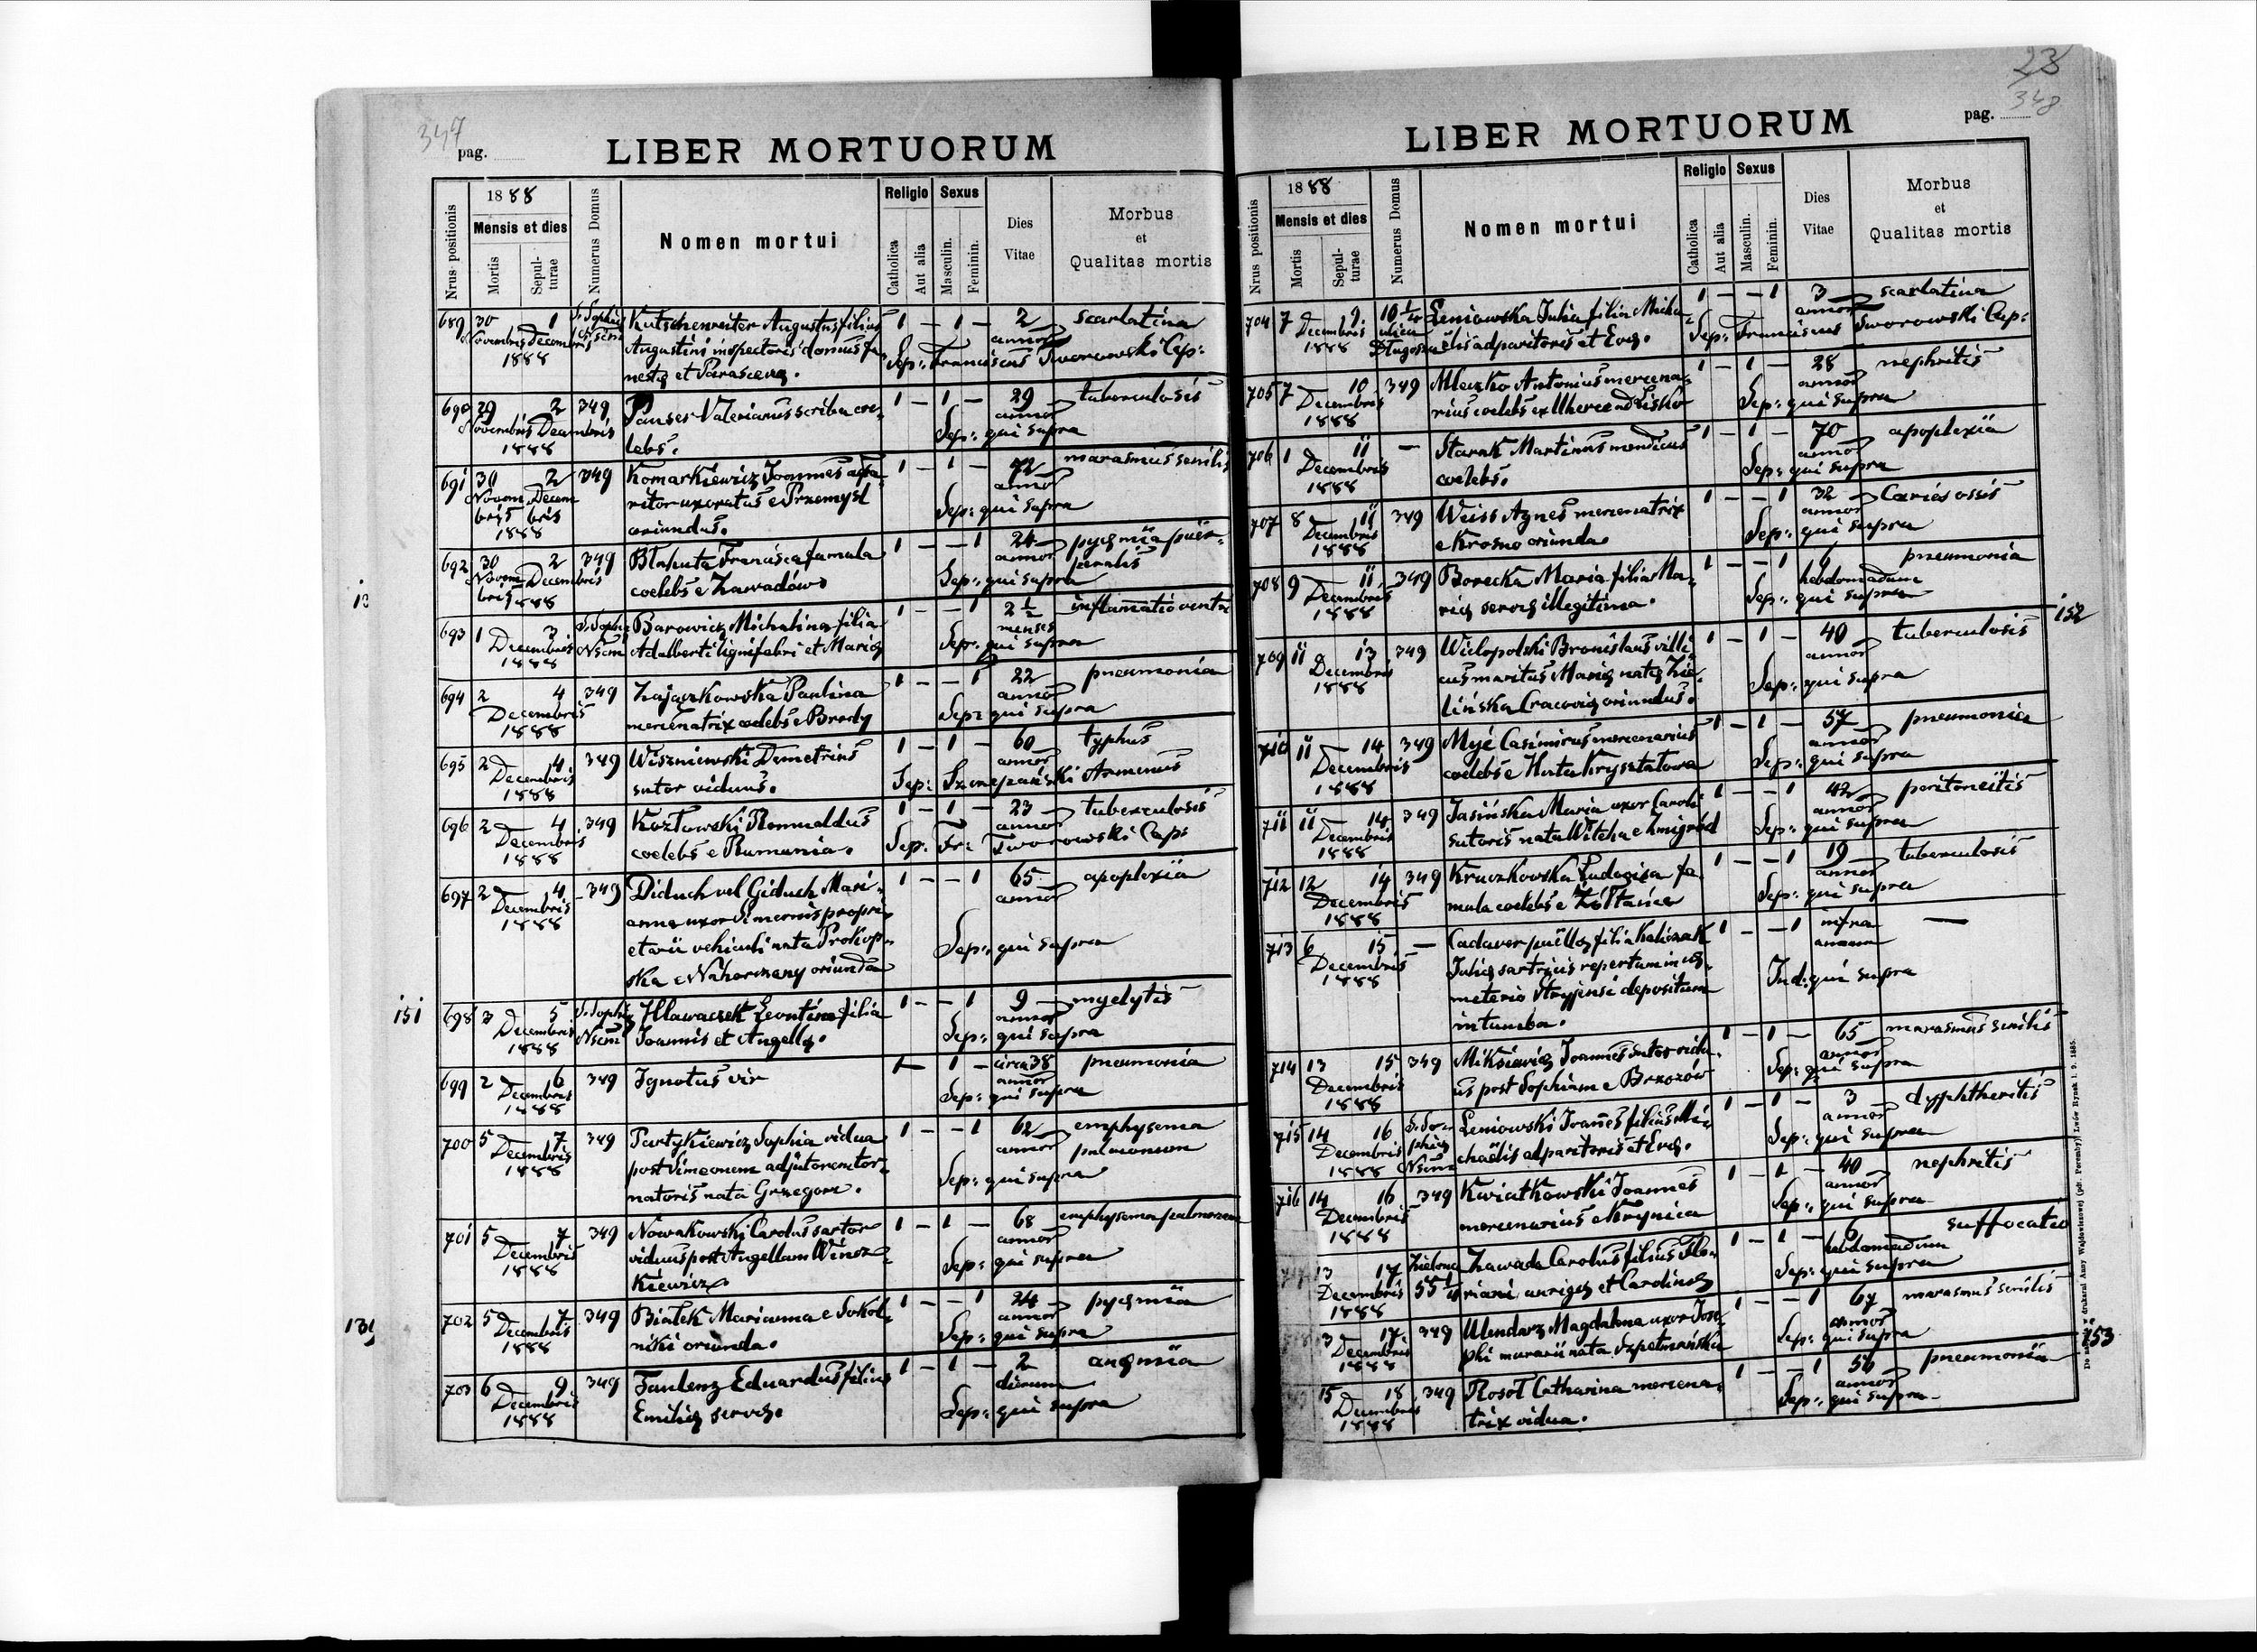 347
pag.
LIBER MORTUORUM
Nrus positionis
1888
Mensis et dies
Mortis
Sepulturae
Numerus Domus
Nomen mortui
Religio
Catholica
Aut alia
Sexus
Masculin.
Feminin.
Dies Vitae
Morbus et Qualitas mortis
689 30 Novembris 1 Decembris 1888 S. Sophiae
Kutschenreiter Augustus filius 1 – 1 – 2 annor scarlatina
Augustini inspectoris domus fu-
nestę et Parascevę. Sep: Franciscus Tworowski Cap:
690 29 Novembris 2 Decembris 1888 349
Panser Valerianus scriba coe- 1 – 1 – 29 annor tuberculosis
lebs. Sep: qui supra
691 30 Novembris 2 Decembris 1888 349
Komarkiewicz Joannes appa- 1 – 1 – 72 annor marasmus senilis
ritor uxoratus e Przemyśl
oriundus. Sep: qui supra
692 30 Novembris 2 Decembris 1888 349
Błahuta Francisca famula 1 – – 1 24 annor pyęmia puer-
coelebs e Zawadów. Sep: qui supra peralis
693 1 3 Decembris 1888 S. Sophię
Barowicz Michalina filia 1 – – 1 2½ menses inflammatio ventr
Adalberti lignifabri et Marię Sep: qui supra
694 2 4 Decembris 1888 349
Zajączkowska Paulina 1 – – 1 22 annor pneumonia
mercenatrix coelebs e Brody Sep: qui supra
695 2 4 Decembris 1888 349
Wiszniewski Demetrius 1 – 1 – 60 annor typhus
sutor viduus. Sep: Szczepański Armenus
696 2 4 Decembris 1888 349
Kozłowski Romualdus 1 – 1 – 23 annor tuberculosis
coelebs e Rumunia. Sep: Fr: Tworowski Cap:
697 2 4 Decembris 1888 349
Diduch vel Giduch Mari- 1 – – 1 65 annor apoplexia
anna uxor Simeonis propri-
etarii vehiculi nata Prokop-
ska e Nahorczany oriunda Sep: qui supra
151
698 3 5 Decembris 1888 S. Sophię
Hlawaczek Leontina filia 1 – – 1 9 annor myelytis
Joannis et Angellę. Sep: qui supra
699 2 6 Decembris 1888 349
Ignotus vir 1 – 1 – circa 38 annor pneumonia
Sep: qui supra
700 5 7 Decembris 1888 349
Partykiewicz Sophia vidua 1 – – 1 62 annor emphysema
post Simeonem adjutorem tor- pulmonum
natoris nata Grzegorz. Sep: qui supra
701 5 7 Decembris 1888 349
Nowakowski Carolus sartor 1 – 1 – 68 annor emphysema pulmonum
viduus post Angellam Wincz-
kiewicz. Sep: qui supra
702 5 7 Decembris 1888 349
Białek Marianna e Sokol- 1 – – 1 24 annor pyęmia
niki oriunda. Sep: qui supra
703 6 9 Decembris 1888 349
Faulenz Eduardus filius 1 – 1 – 2 dierum anęmia
Emilię servę. Sep: qui supra
23
348
pag.
LIBER MORTUORUM
Nrus positionis
1888
Mensis et dies
Mortis
Sepulturae
Numerus Domus
Nomen mortui
Religio
Catholica
Aut alia
Sexus
Masculin.
Feminin.
Dies Vitae
Morbus et Qualitas mortis
704 7 9 Decembris 1888 10¼ ulica Długosza
Leniowska Julia filia Micha- 1 – – 1 3 annor scarlatina
elis adparitoris et Evę. Sep: Franciscus Tworowski Cap:
705 7 10 Decembris 1888 349
Mleczko Antonius mercena- 1 – 1 – 28 annor nephritis
rius coelebs ex Uherce ad Lisko Sep: qui supra
706 1 11 Decembris 1888 –
Starak Martinus mendicus 1 – 1 – 70 annor apoplexia
coelebs. Sep: qui supra
707 8 11 Decembris 1888 349
Weiss Agnes mercenatrix 1 – – 1 32 annor Caries ossis
e Krosno oriunda. Sep: qui supra
708 9 11 Decembris 1888 349
Borecka Maria filia Ma- 1 – – 1 6 hebdomadum pneumonia
rię servę illegitima. Sep: qui supra
152
709 11 13 Decembris 1888 349
Wielopolski Bronislaus villi- 1 – 1 – 40 annor tuberculosis
cus maritus Marię natę Zie-
lińska Cracovię oriundus. Sep: qui supra
710 11 14 Decembris 1888 349
Myć Casimirus mercenarius 1 – 1 – 57 annor pneumonia
coelebs e Huta Krysztatowa Sep: qui supra
711 11 14 Decembris 1888 349
Jasińska Maria uxor Caroli 1 – – 1 42 annor peritoneitis
sutoris nata Witcha e Żmigród Sep: qui supra
712 12 14 Decembris 1888 349
Kruczkowska Ludovica fa- 1 – – 1 19 annor tuberculosis
mula coelebs e Żółtańce Sep: qui supra
713 6 15 Decembris 1888 –
Cadaver puellę filia Kaliczak 1 – – 1 infra annum –
Julię sartricis repertum in cę-
meterio Stryjensi depositum
in tumba. Ind: qui supra
714 13 15 Decembris 1888 349
Miksiewicz Joannes sutor vidu- 1 – 1 – 65 annor marasmus senilis
us post Sophiam e Brzozów Sep: qui supra
715 14 16 Decembris 1888 S. Sophię
Leniowski Joannes filius Mi- 1 – 1 – 3 annor dyphtheritis
chaëlis adparitoris et Evę. Sep: qui supra
716 14 16 Decembris 1888 349
Kwiatkowski Joannes 1 – 1 – 40 annor nephritis
mercenarius e Krynica Sep: qui supra
717 13 17 Decembris 1888 Zielona 55¼
Zawada Carolus filius Flo- 1 – 1 – 6 hebdomadum suffocatio
riani aurigę et Carolinę Sep: qui supra
3 17 Decembris 1888 349
Mendarz Magdalena uxor Jose- 1 – – 1 67 annor marasmus senilis
phi murarii nata Szpetmańska Sep: qui supra
153
15 18 Decembris 1888 349
Rosoł Catharina mercena- 1 – – 1 56 annor pneumonia
trix vidua. Sep: qui supra